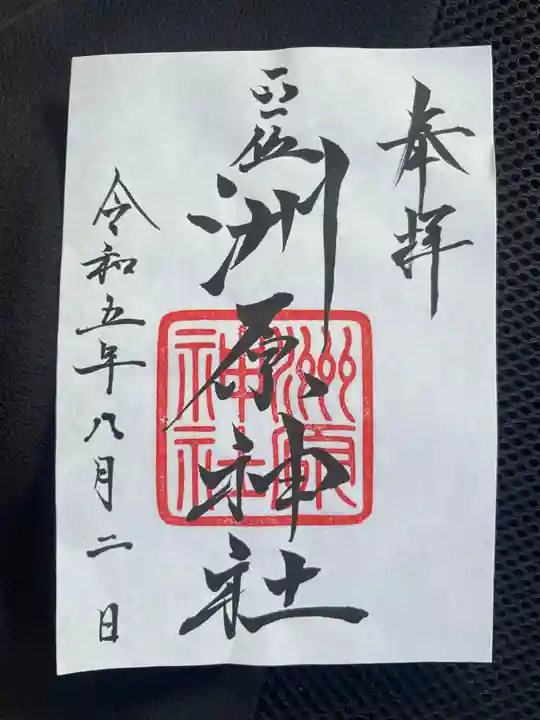 奉拝
正一位
洲原神社
洲原神社
令和五年八月二日